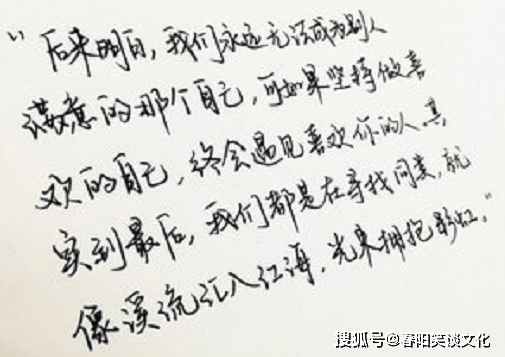 “后来明白，我们永远无法成为别人
满意的那个自己，可如果坚持做喜
欢的自己，终会遇见喜欢你的人其
实到最后，我们都是在寻找同类，就
像溪流汇入江海，光束拥抱彩虹。”
搜狐号@春阳笑谈文化